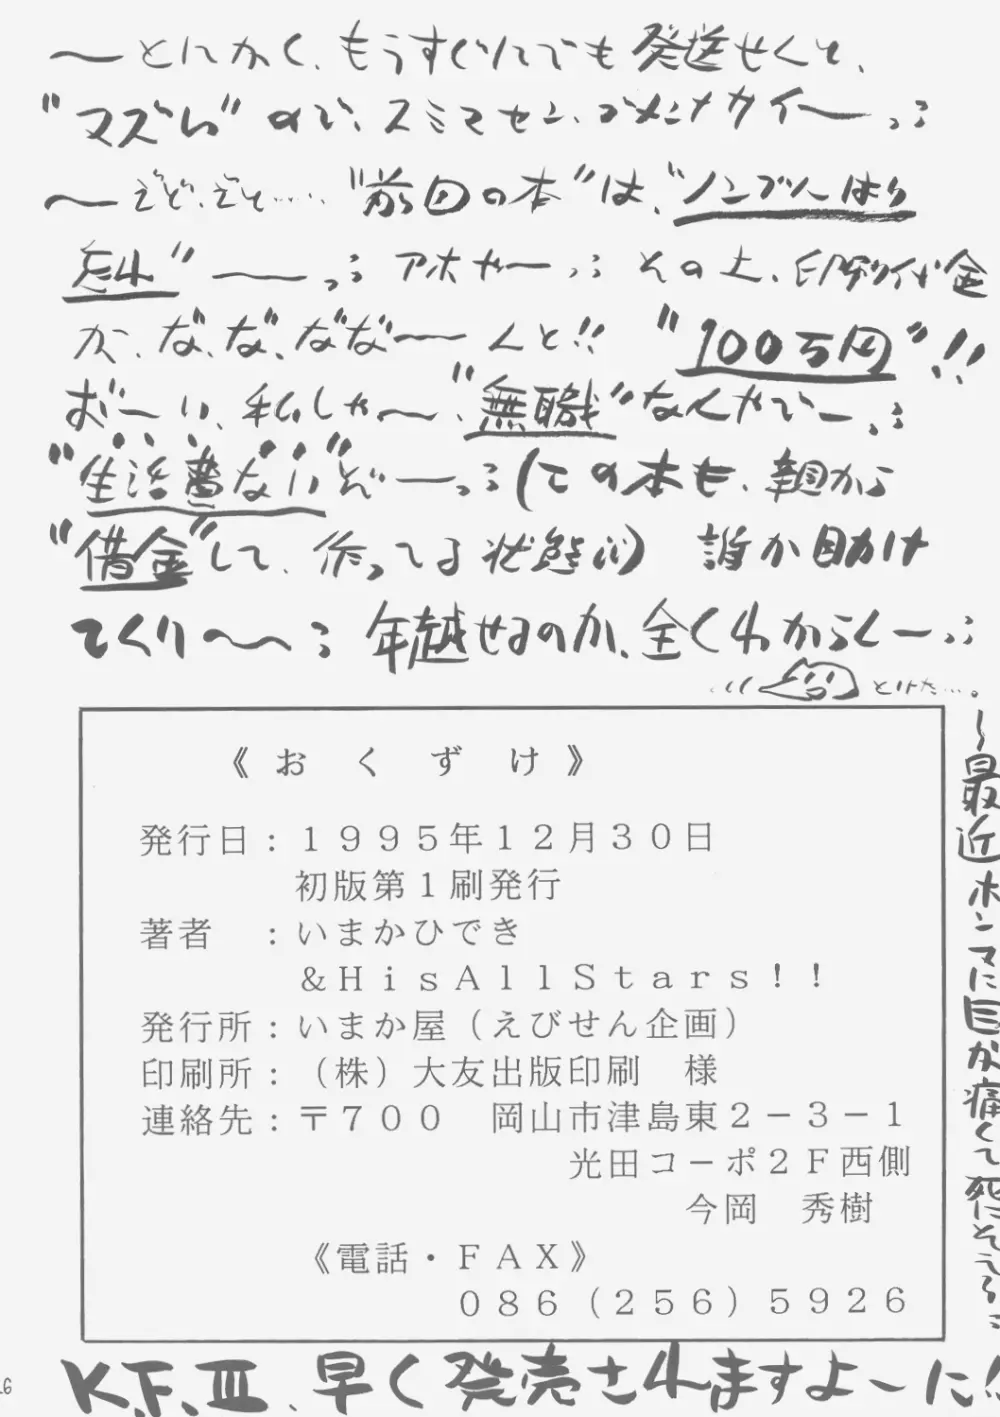 〜とにかく、もうすぐにでも発送せんと、
"マズい"ので、スミマセン、ゴメンナサイーっ;
〜ぞぞ、ぞぞ……"前回の本"は、"ノンブルはり
忘れ"――っ; アホやーっ; その上、印刷代金
が、な、な、なな〜んと!! "100万円"!!
おーい、私しゃ〜、"無職"なんやでーっ;
"生活費ない"ぞーっ;(この本も、親から
"借金"して、作ってる状態(泣)) 誰か助け
てくり〜〜; 年越せるのか、全くわからんーっ;
とけた…。
〜最近ホンマに目が痛くて死にそう〜;
《おくずけ》
発行日:1995年12月30日
初版第1刷発行
著者　:いまかひでき
&HisAllStars!!
発行所:いまか屋(えびせん企画)
印刷所:(株)大友出版印刷　様
連絡先:〒700　岡山市津島東2-3-1
光田コーポ2F西側
今岡　秀樹
《電話・FAX》
086(256)5926
K.F.III、早く発売されますよーに!!
26